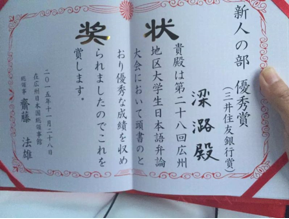 奨状
新人の部 優秀賞
(三井住友銀行賞)
梁潞殿
貴殿は第二十八回広州
地区大学生日本語弁論
大会において頭書のと
おり優秀な成績を収め
られましたのでこれを
賞します.
二〇一五年十一月二十八日
在広州日本国総領事館
総領事 齋藤 法雄